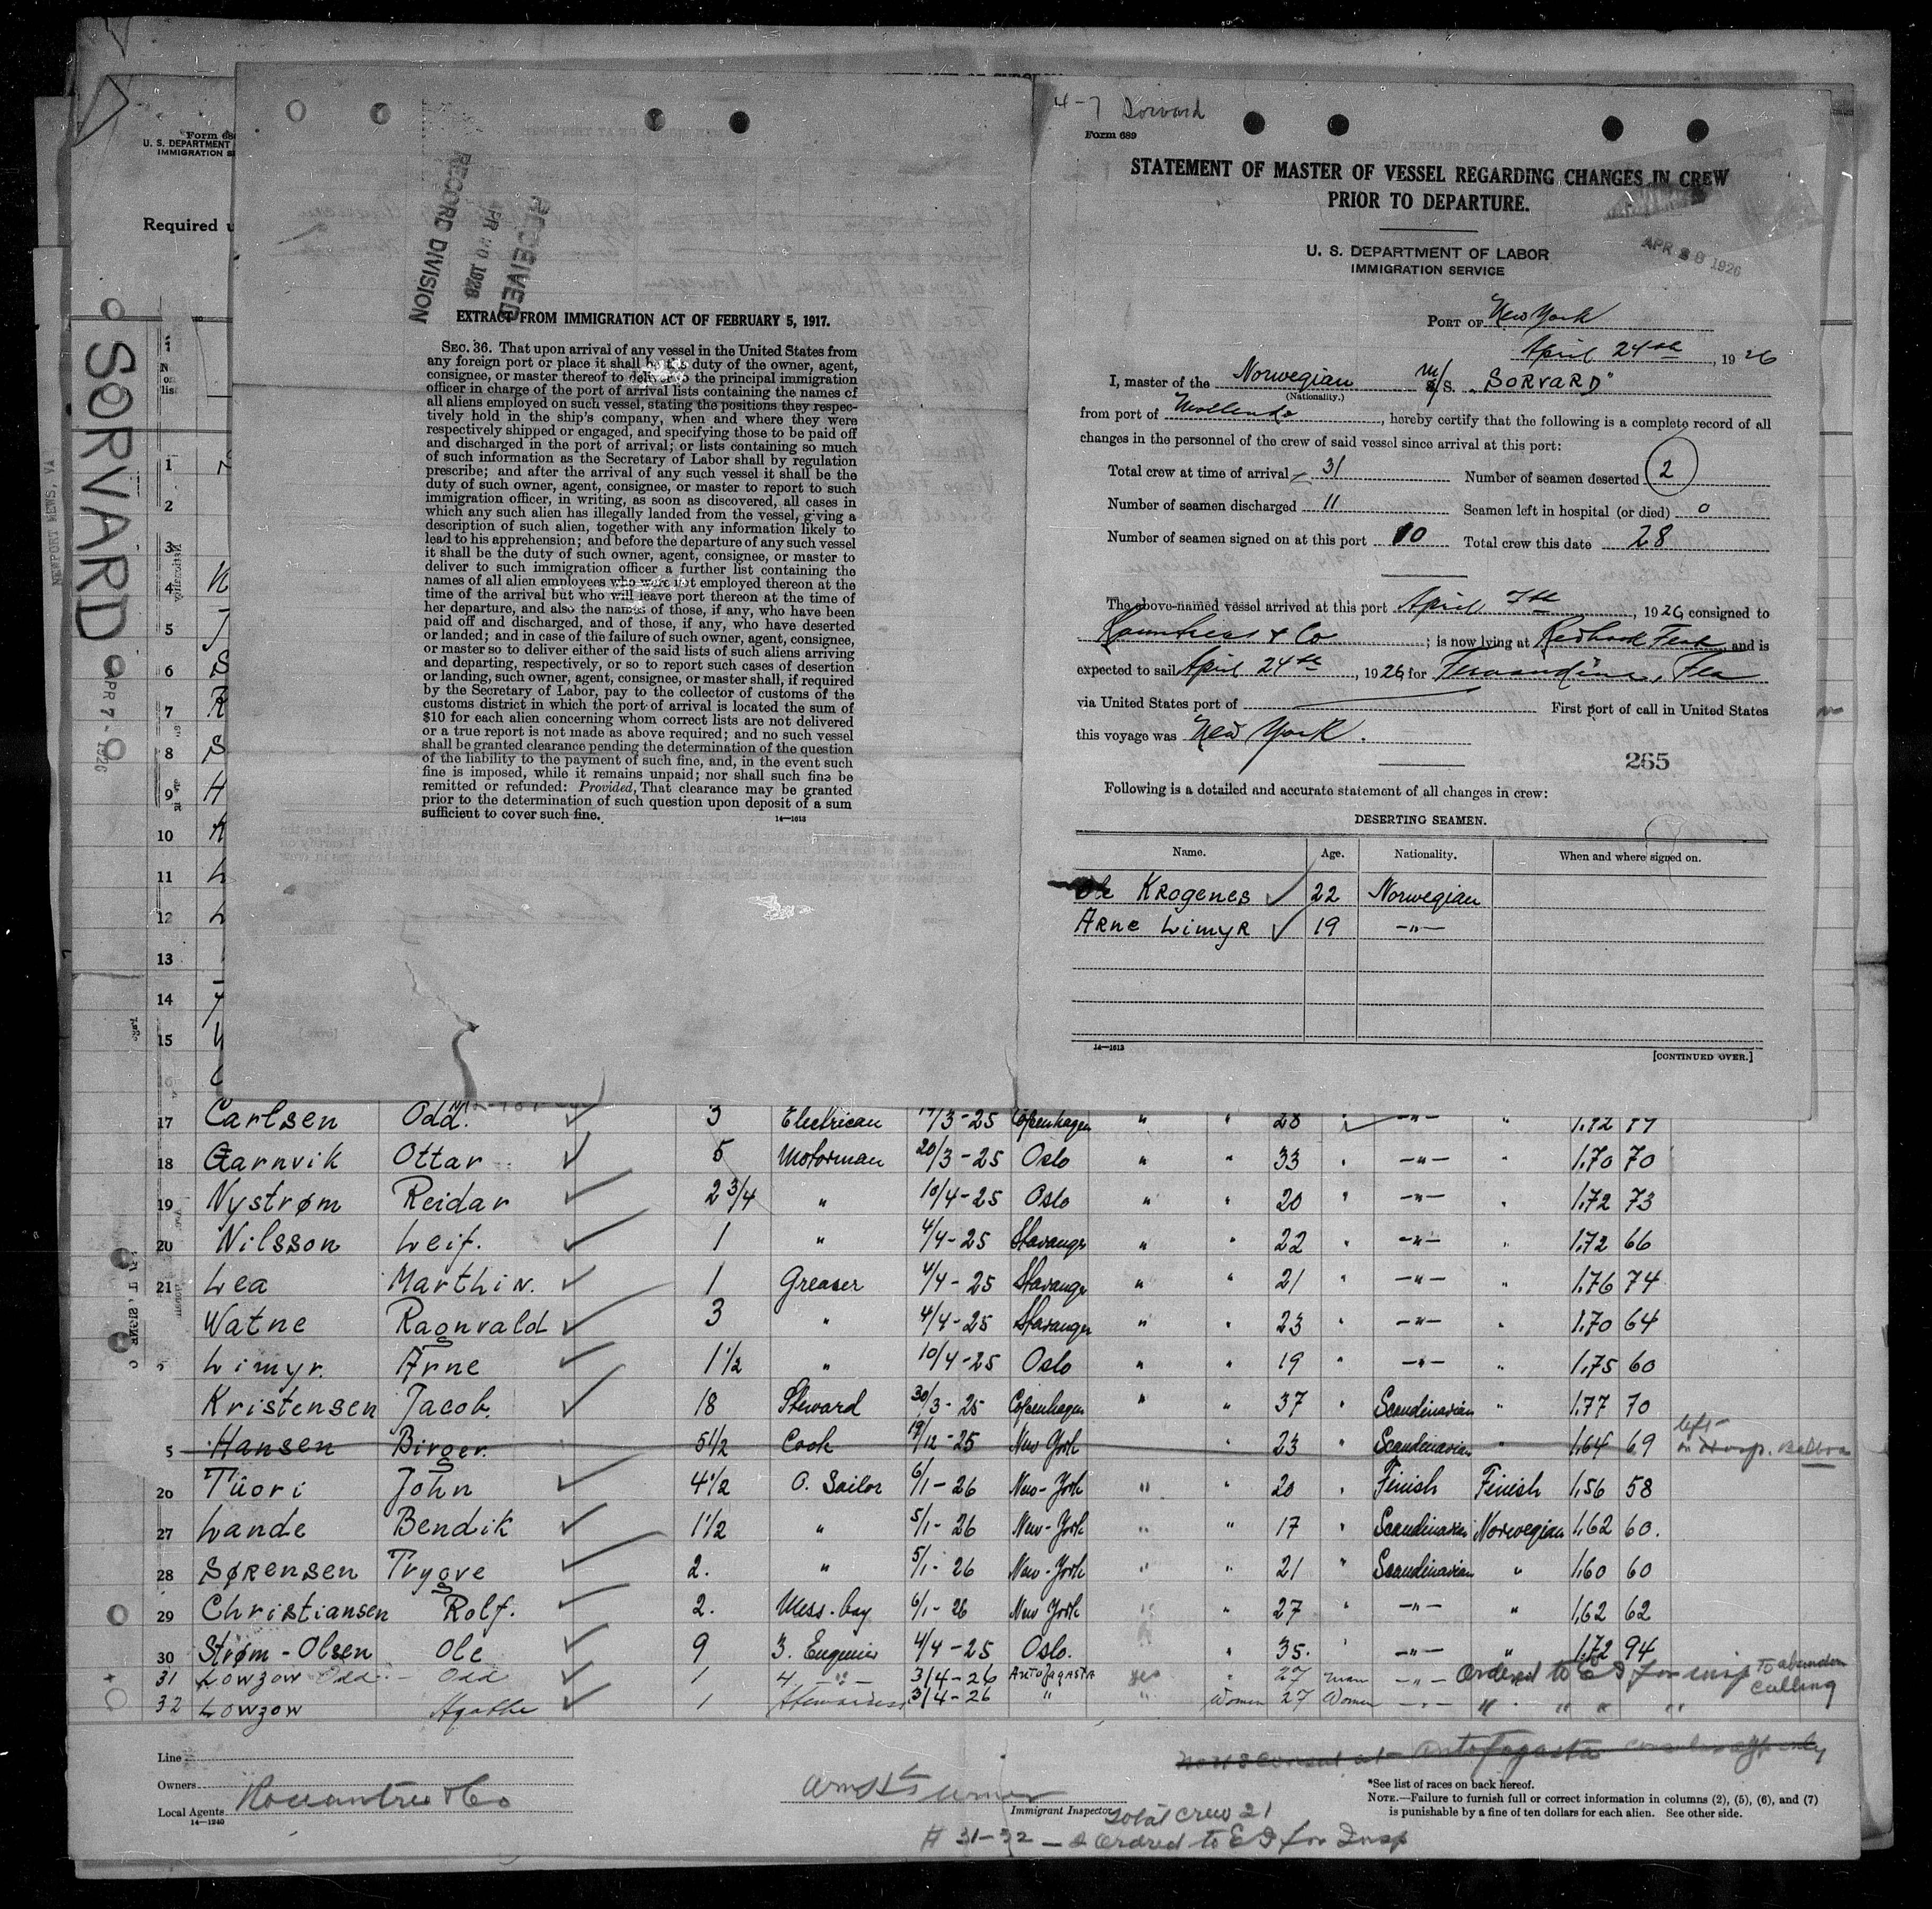 4-7 Sorvard
Form 689
STATEMENT OF MASTER OF VESSEL REGARDING CHANGES IN CREW
PRIOR TO DEPARTURE.
U. S. DEPARTMENT OF LABOR
IMMIGRATION SERVICE
APR 28 1926
PORT OF New York
April 24th, 1926
I, master of the Norwegian M/S. "SORVARD"
(Nationality.)
from port of Mollendo, hereby certify that the following is a complete record of all
changes in the personnel of the crew of said vessel since arrival at this port:
Total crew at time of arrival 31 Number of seamen deserted 2
Number of seamen discharged 11 Seamen left in hospital (or died) 0
Number of seamen signed on at this port 10 Total crew this date 28
The above-named vessel arrived at this port April 7th, 1926, consigned to
& Co ; is now lying at and is
expected to sail April 24th, 1926, for Fernandina, Fla
via United States port of First port of call in United States
this voyage was New York.
265
Following is a detailed and accurate statement of all changes in crew:
DESERTING SEAMEN.
Name. Age. Nationality. When and where signed on.
Ole Krogenes 22 Norwegian
Arne Limyr 19 -"-
14—1613
[CONTINUED OVER.]
RECEIVED
APR 30 1926
RECORD DIVISION
EXTRACT FROM IMMIGRATION ACT OF FEBRUARY 5, 1917.
SEC. 36. That upon arrival of any vessel in the United States from
any foreign port or place it shall be the duty of the owner, agent,
consignee, or master thereof to deliver to the principal immigration
officer in charge of the port of arrival lists containing the names of
all aliens employed on such vessel, stating the positions they respec-
tively hold in the ship's company, when and where they were
respectively shipped or engaged, and specifying those to be paid off
and discharged in the port of arrival; or lists containing so much
of such information as the Secretary of Labor shall by regulation
prescribe; and after the arrival of any such vessel it shall be the
duty of such owner, agent, consignee, or master to report to such
immigration officer, in writing, as soon as discovered, all cases in
which any such alien has illegally landed from the vessel, giving a
description of such alien, together with any information likely to
lead to his apprehension; and before the departure of any such vessel
it shall be the duty of such owner, agent, consignee, or master to
deliver to such immigration officer a further list containing the
names of all alien employees who were not employed thereon at the
time of the arrival but who will leave port thereon at the time of
her departure, and also the names of those, if any, who have been
paid off and discharged, and of those, if any, who have deserted
or landed; and in case of the failure of such owner, agent, consignee,
or master so to deliver either of the said lists of such aliens arriving
and departing, respectively, or so to report such cases of desertion
or landing, such owner, agent, consignee, or master shall, if required
by the Secretary of Labor, pay to the collector of customs of the
customs district in which the port of arrival is located the sum of
$10 for each alien concerning whom correct lists are not delivered
or a true report is not made as above required; and no such vessel
shall be granted clearance pending the determination of the question
of the liability to the payment of such fine, and, in the event such
fine is imposed, while it remains unpaid; nor shall such fine be
remitted or refunded: Provided, That clearance may be granted
prior to the determination of such question upon deposit of a sum
sufficient to cover such fine.
14—1613
Form 68
U. S. DEPARTMENT
IMMIGRATION
Required
SORVARD
APR 7 - 1926
NEWPORT NEWS, VA
1
2
3
4
5
6
7
8
9
10
11
12
13
14
15
17 Carlsen Odd. 3 Electrican /3-25 Copenhagen " " 28 " -"- " 1.72 77
18 Garnvik Ottar 5 Motorman 20/3-25 Oslo " " 33 " -"- " 1.70 70
19 Nystrøm Reidar 2 3/4 " 10/4-25 Oslo " " 20 " -"- " 1.72 73
20 Nilsson Leif. 1 " 4/4-25 Stavanger " " 22 " -"- " 1.72 66
21 Lea Marthin. 1 Greaser 4/4-25 Stavanger " " 21 " -"- " 1.76 74
Watne Ragnvald 3 " 4/4-25 Stavanger " " 23 " -"- " 1.70 64
Limyr. Arne 1 1/2 " 10/4-25 Oslo " " 19 " -"- " 1.75 60
Kristensen Jacob. 18 Steward 30/3-25 Copenhagen " " 37 " Scandinavian " 1.77 70
5 Hansen Birger. 5 1/2 Cook 19/12-25 New York " 23 " Scandinavian " 1.64 69 left in Hosp. Balboa
20 Tüori John 4 1/2 O. Sailor 6/1-26 New-York " " 20 " Finish Finish 1.56 58
27 Lande Bendik 1 1/2 " 5/1-26 New-York " " 17 " Scandinavian Norwegian 1.62 60.
28 Sørensen Trygve 2. " 5/1-26 New-York " " 21 " Scandinavian " 1.60 60
29 Christiansen Rolf. 2. Mess-boy 6/1-26 New York " " 27 " -"- " 1.62 62
30 Strøm-Olsen Ole 9 3. Engineer 4/4-25 Oslo. " " 35. " -"- " 1.72 94
31 Lowzow Odd Odd 1 4. -"- 3/4-26 Antofagasta yes " 27 man -"- Ordered to EI for insp To abandon calling
32 Lowzow Agathe 1 Stewardess 3/4-26 " " Women 27 Women -"- " " " "
Line
Owners
Local Agents Rountree & Co
14—1240
Immigrant Inspector.
Total crew 21
# 31-32 — Ordred to EI for Insp
*See list of races on back hereof.
NOTE.—Failure to furnish full or correct information in columns (2), (5), (6), and (7)
is punishable by a fine of ten dollars for each alien. See other side.